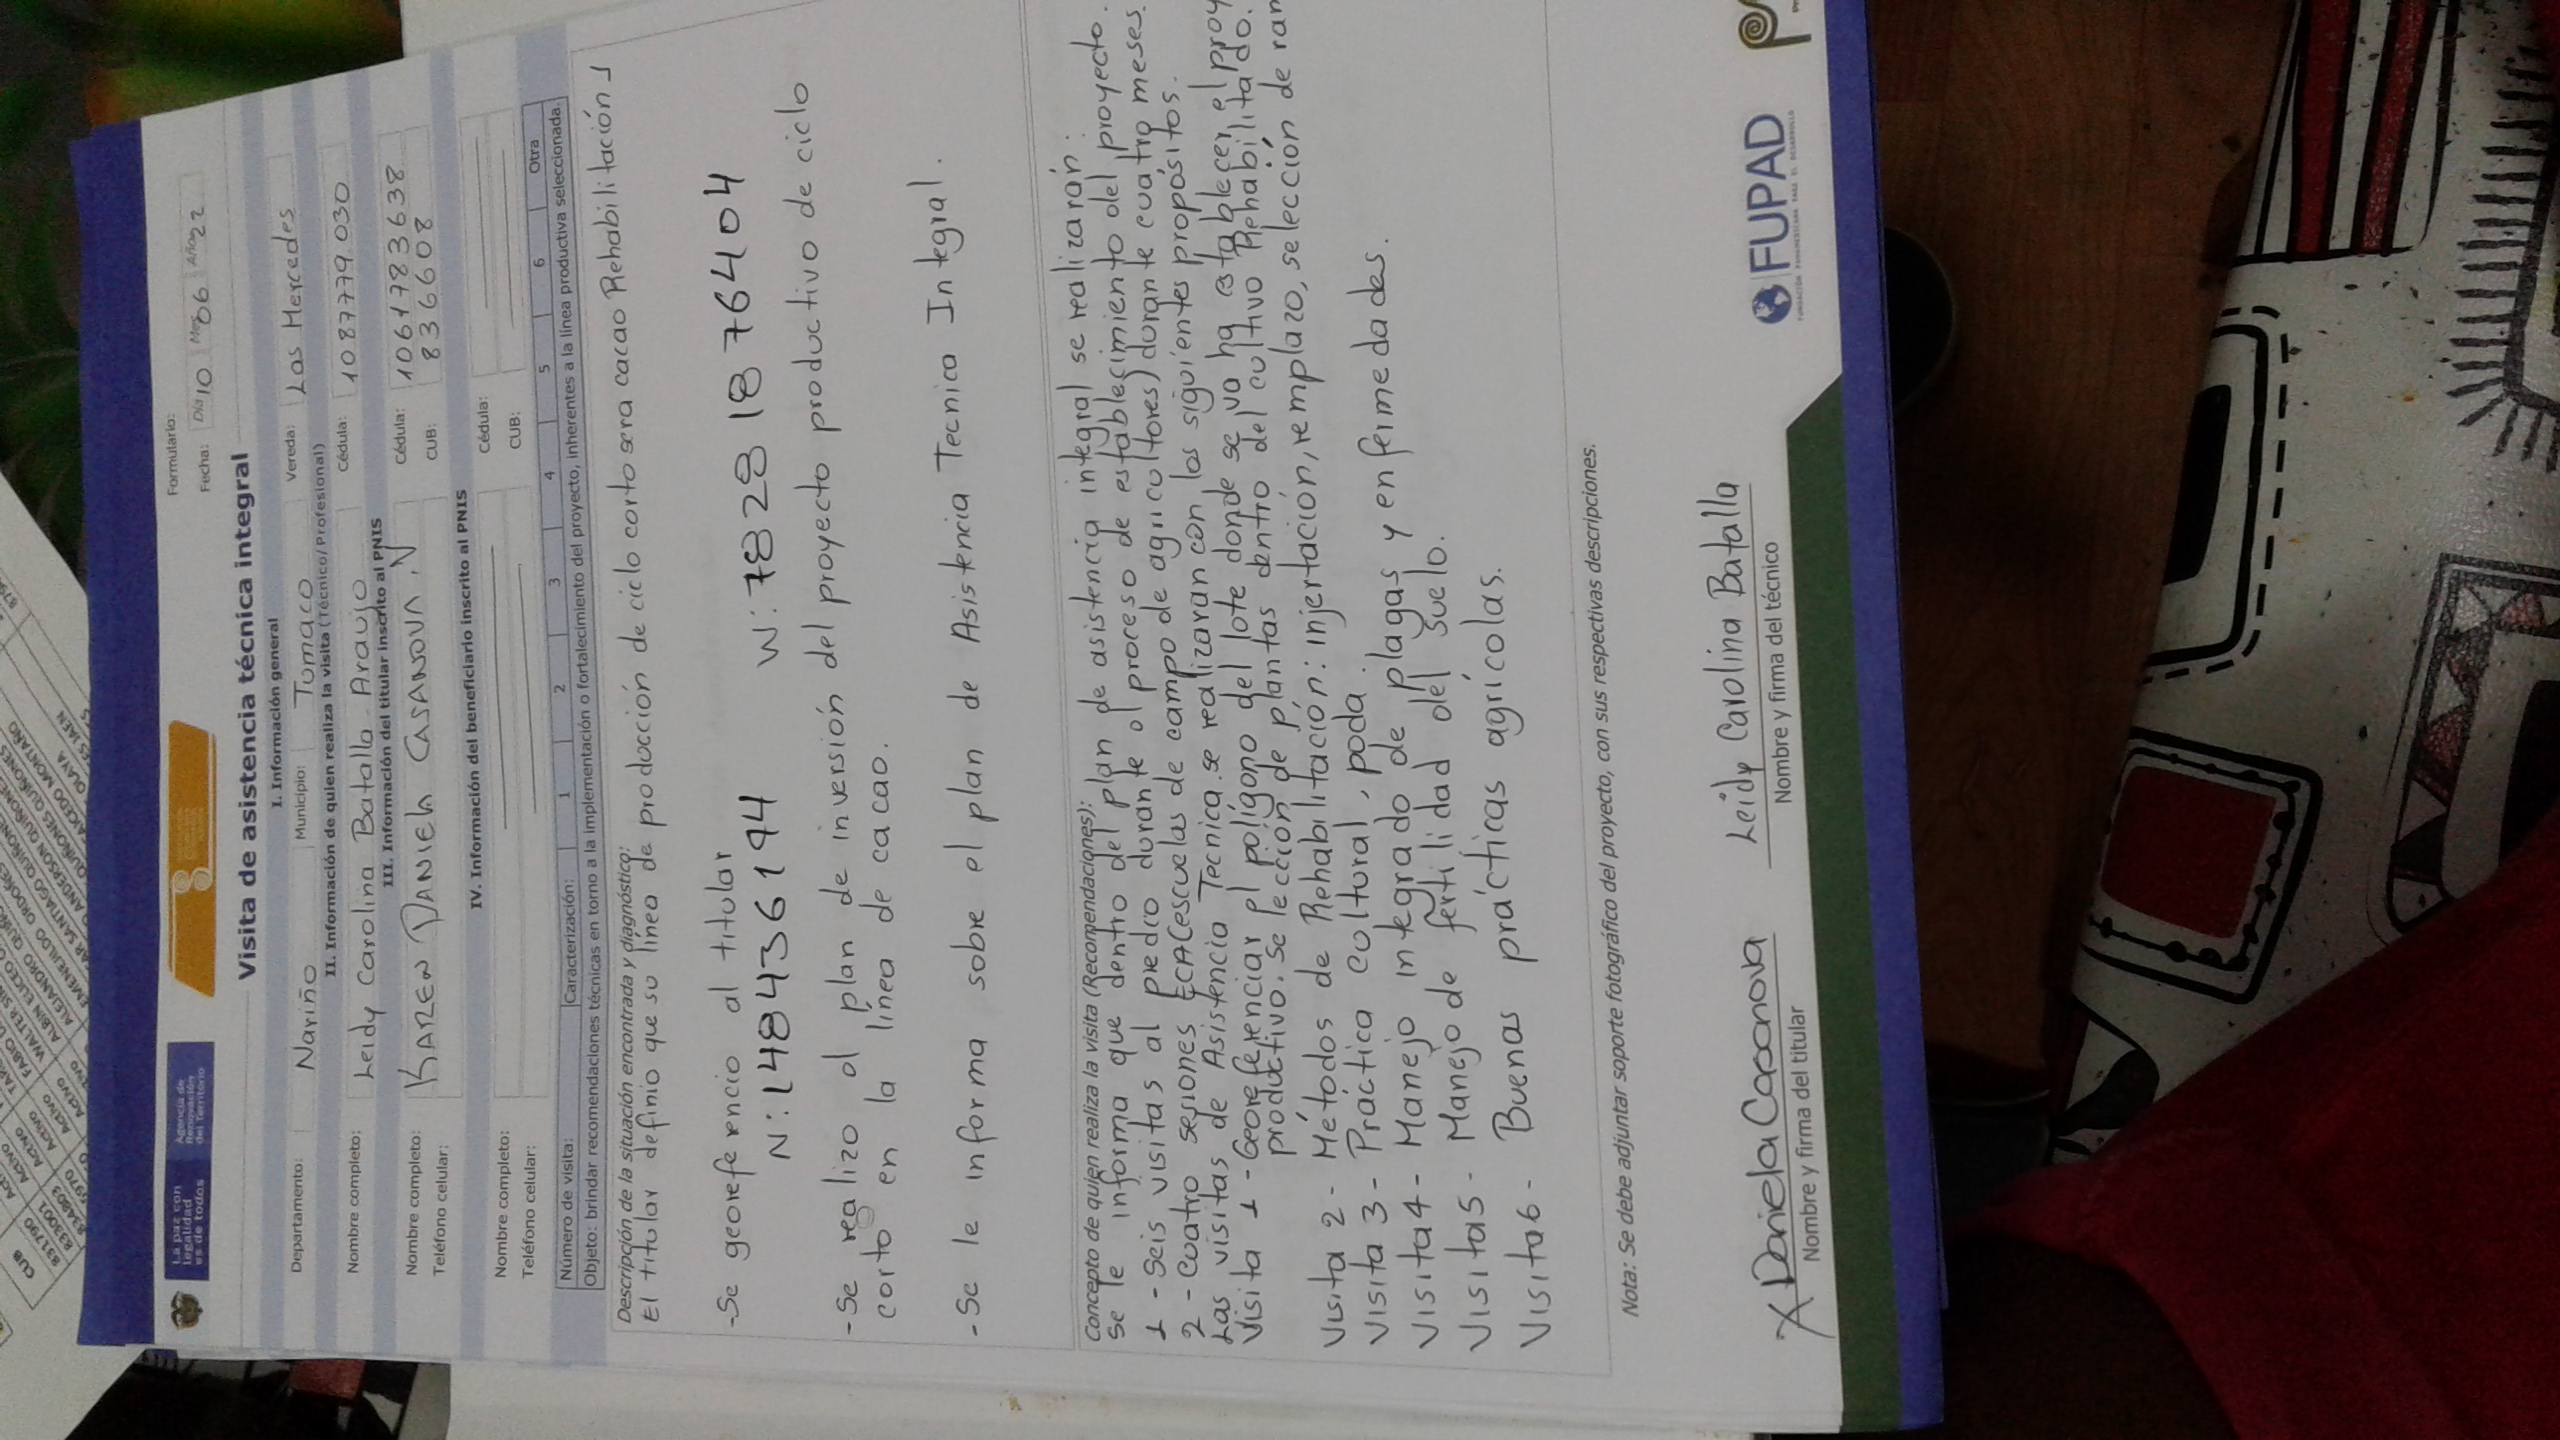 La paz con
legalidad
es de todos
Agencia de
Renovación
del Territorio
Formulario:
Fecha: Día 10 Mes 06 Año 22
Visita de asistencia técnica integral
I. Información general
Departamento: Nariño Municipio: Tumaco Vereda: Las Mercedes
II. Información de quien realiza la visita (Técnico/Profesional)
Nombre completo: Leidy Carolina Batalla Araujo Cédula: 1087779.030
III. Información del titular inscrito al PNIS
Nombre completo: KAREN DANIELA CASANOVA .N Cédula: 1061783638
Teléfono celular: CUB: 836608
IV. Información del beneficiario inscrito al PNIS
Nombre completo: Cédula:
Teléfono celular: CUB:
Número de visita: Caracterización: 1 2 3 4 5 6 Otra
Objeto: brindar recomendaciones técnicas en torno a la implementación o fortalecimiento del proyecto, inherentes a la línea productiva seleccionada.
Descripción de la situación encontrada y diagnóstico:
El titular definio que su línea de producción de ciclo corto sera cacao Rehabilitación 1
-Se georeferencio al titular
N: 148436194 W: 78281876404
-Se realizo el plan de inversión del proyecto productivo de ciclo
corto en la línea de cacao.
-Se le informa sobre el plan de Asistencia Tecnica Integral.
Concepto de quien realiza la visita (Recomendaciones):
Se le informa que dentro del plan de asistencia integral se realizarán:
1 - Seis visitas al predio durante el proceso de establecimiento del proyecto.
2 - Cuatro sesiones ECA(escuelas de campo de agricultores) durante cuatro meses.
Las visitas de Asistencia Tecnica se realizaran con los siguientes propósitos.
Visita 1 - Georeferenciar el polígono del lote donde se va ha establecer el proy
productivo. Selección de plantas dentro del cultivo Rehabilitado.
Visita 2 - Métodos de Rehabilitación: injertación, remplazo, selección de ram
Visita 3 - Práctica cultural, poda.
Visita 4 - Manejo integrado de plagas y enfermedades.
Visita 5 - Manejo de fertilidad del suelo.
Visita 6 - Buenas prácticas agrícolas.
Nota: Se debe adjuntar soporte fotográfico del proyecto, con sus respectivas descripciones.
X Daniela Casanova Leidy Carolina Batalla
Nombre y firma del titular Nombre y firma del técnico
FUPAD
FUNDACIÓN PANAMERICANA PARA EL DESARROLLO
CUB
831790
833001
834803
Activo
Activo
Activo